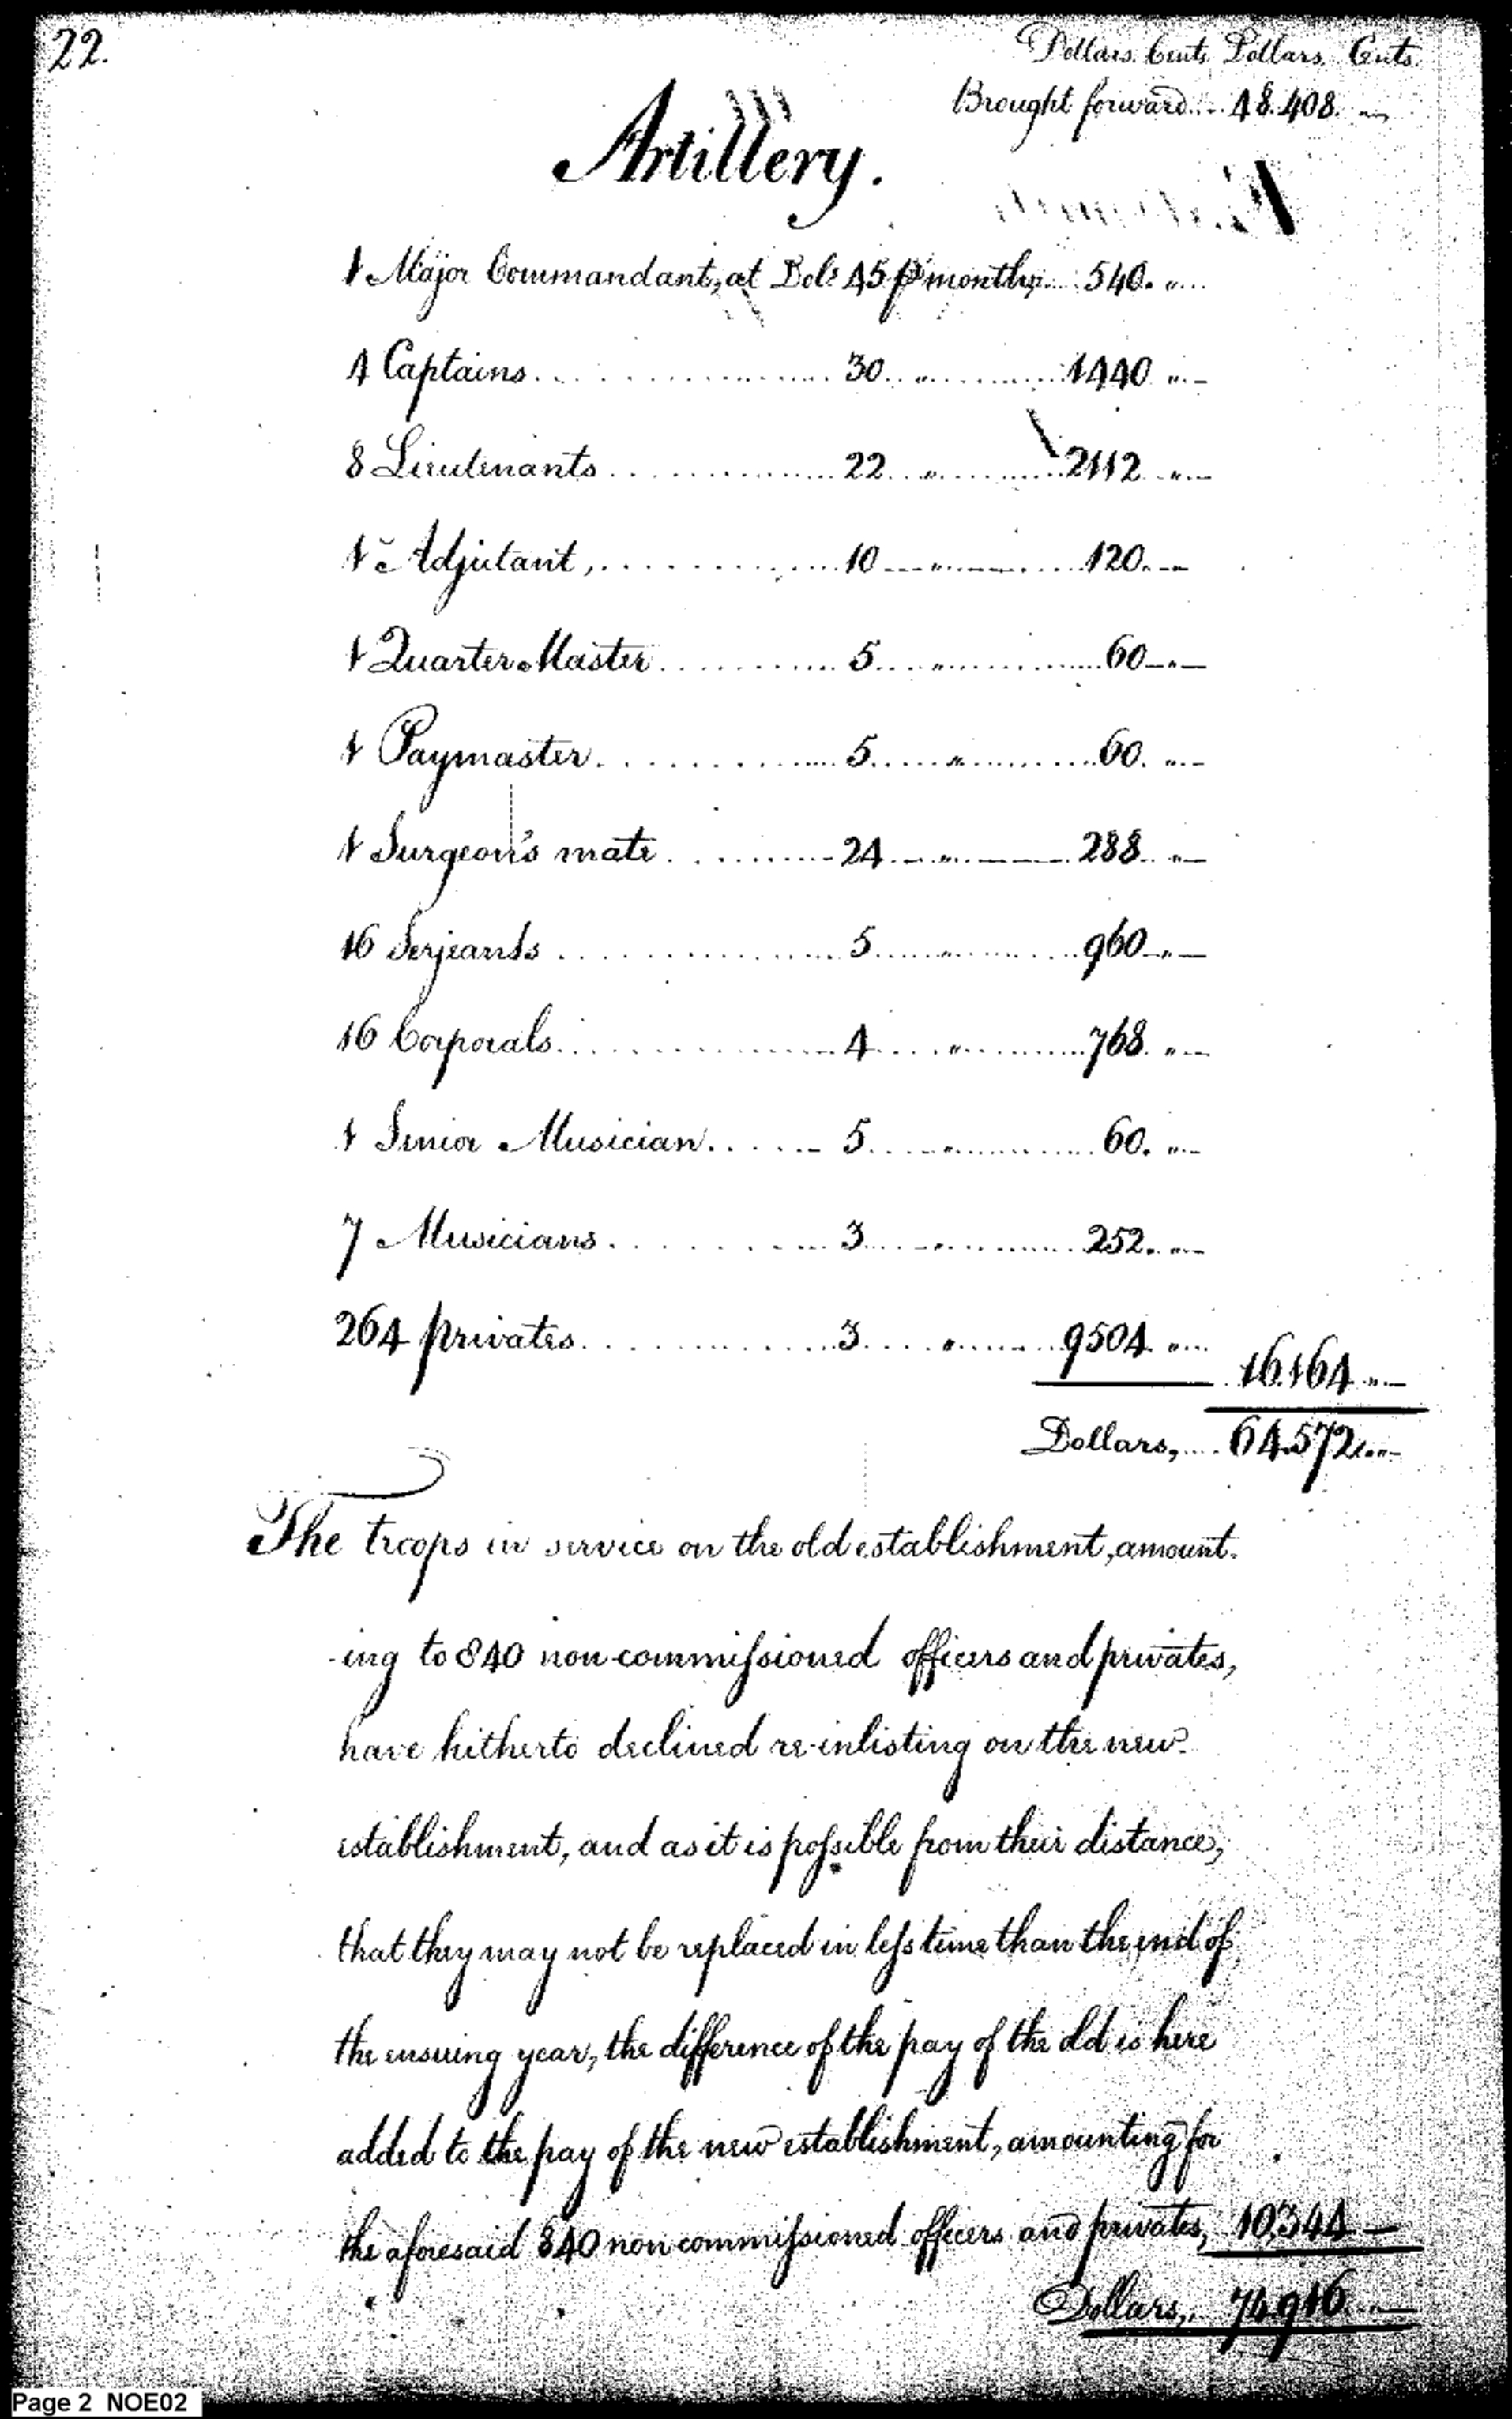 22.
Dollars. Cents Dollars. Cents.
Brought forward.... 48.408. "
Artillery.
1 Major Commandant, at Dolˢ 45 ⅌ month,... 540. "...
4 Captains............ 30... "......... 1440 "
8 Lieutenants............ 22.. "......... 2112 "
1 Adjutant,............ 10 " ...... 120. "
1 Quarter Master............ 5... "......... 60 "
1 Paymaster............ 5... "......... 60. "
1 Surgeon's mate............ 24 " ...... 288. "
16 Serjeants............ 5... "......... 960 "
16 Corporals............ 4... "......... 768. "
1 Senior Musician...... 5... "......... 60. "
7 Musicians............ 3... "......... 252. "
264 privates............ 3... "......... 9504. "
16.164 "
Dollars,.... 64.572. "
The troops in service on the old establishment, amount-
-ing to 840 non-commissioned officers and privates,
have hitherto declined re-inlisting on the new
establishment, and as it is possible from their distance,
that they may not be replaced in less time than the end of
the ensuing year, the difference of the pay of the old is here
added to the pay of the new establishment, amounting for
the aforesaid 840 non commissioned officers and privates, 10,344 —
Dollars,.. 74,916. —
Page 2 NOE02